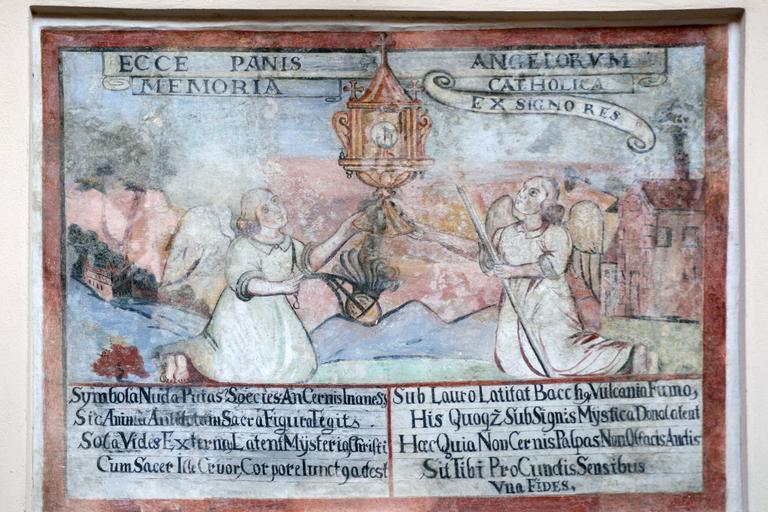 ECCE PANIS ANGELORVM
MEMORIA CATHOLICA
EX SIGNO RES
Symbola Nuda Putas Species An Cernis Inanes
Sic Animi Sacra Figura Tegit.
Sola Vides Externa Latent Mysteria Christi
Cum Sacer Cruor, Corpore Iunct adest
Sub Lauro Latitat Bacch9 Vulcania Fumo,
His Quoqz Sub Signis Mystica Dona Latent
Hæc Quia Non Cernis Palpas Non Olfacis Audis
Sit Tibi Pro Cunctis Sensibus
Vna FIDES.